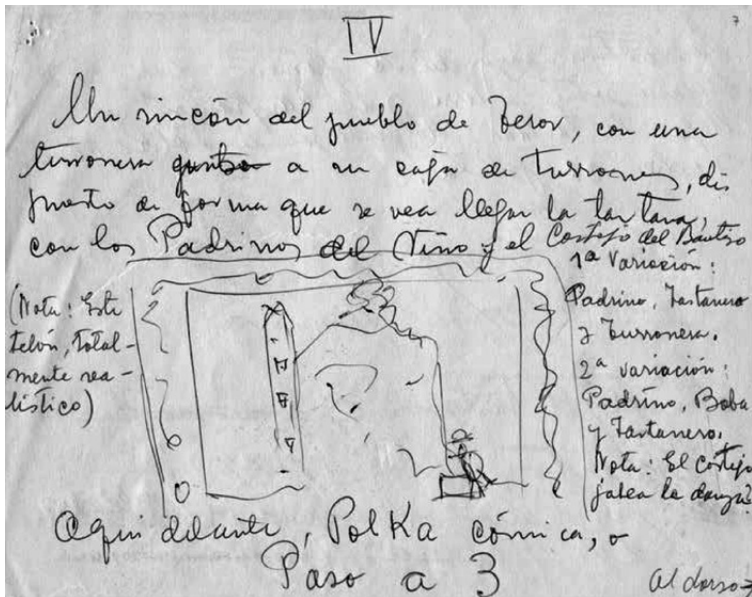 7
IV
Un rincón del pueblo de Teror, con una
turronera junto a su caja de turrones, dis
puesto de forma que se vea llegar la tartana,
con los Padrinos del Niño y el Cortejo del Bautizo
(Nota: Este
telón, total-
mente rea-
lístico)
1ª Variación:
Padrino, Tartanero
y Turronera.
2ª variación:
Padrino, Boba
y Tartanero.
Nota: El cortejo
jalea la danza.
Aquí delante, Polka cómica, o
Paso a 3
al dorso